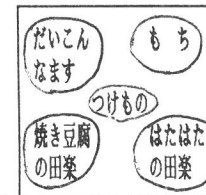 だいこん
なます
もち
つけもの
焼き豆腐
の田楽
はたはた
の田楽